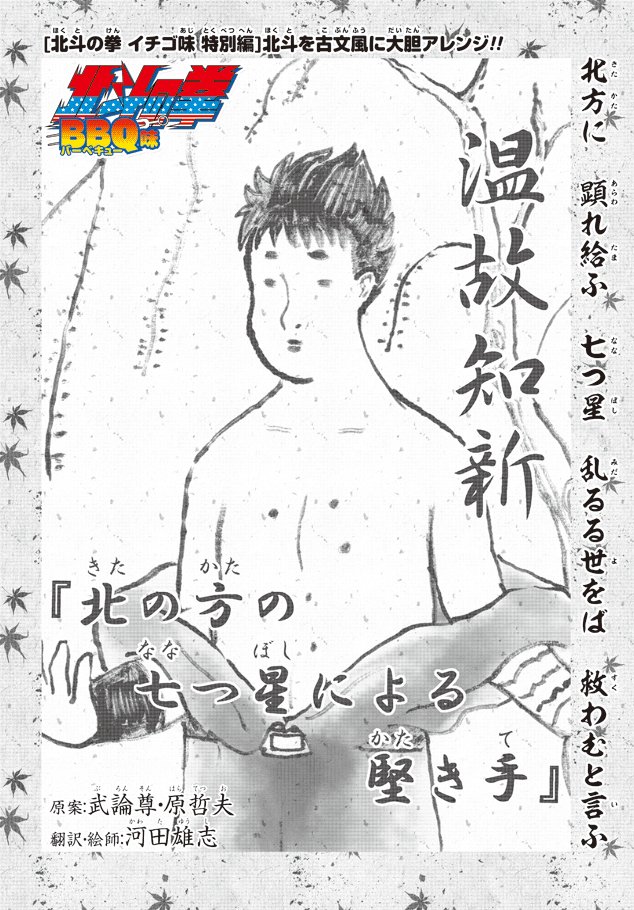 [北斗の拳 イチゴ味 特別編]北斗を古文風に大胆アレンジ!!
北斗の拳
BBQ味
バーベキュー
北方に 顕れ給ふ 七つ星 乱るる世をば 救わむと言ふ
温故知新
『北の方の
七つ星による
堅き手』
原案:武論尊・原哲夫
翻訳・絵師:河田雄志